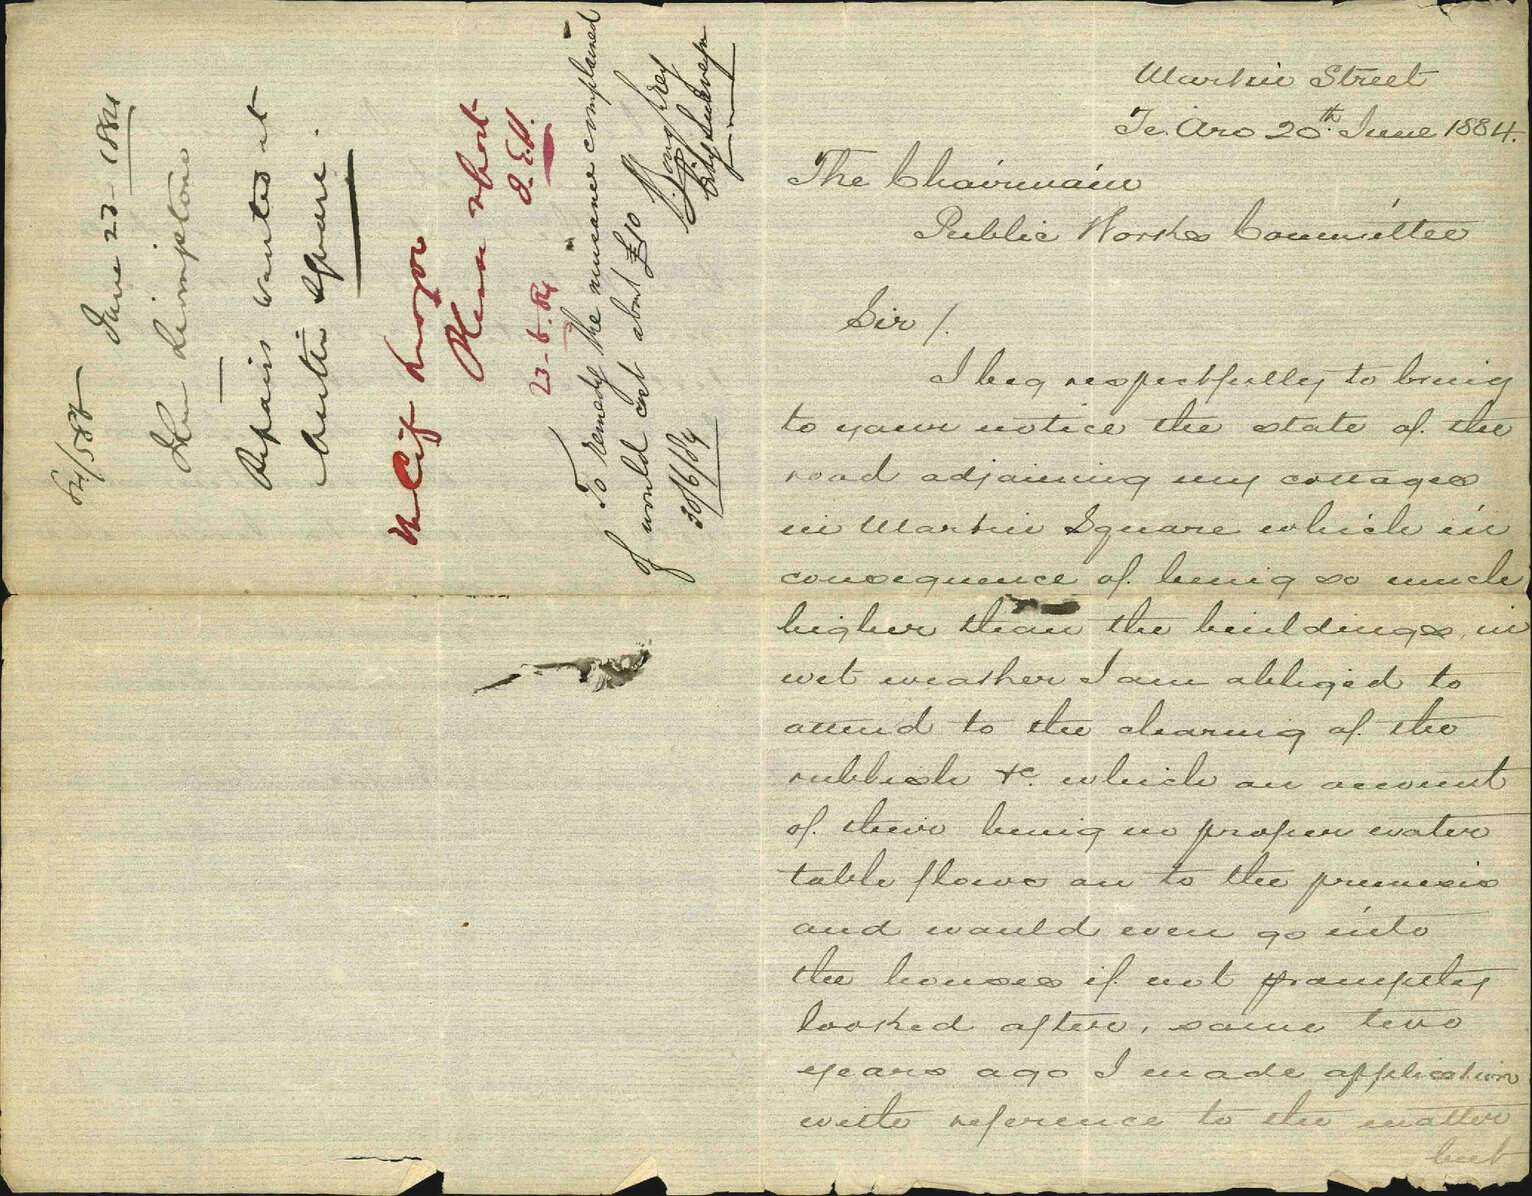 Martin Street
Te Aro 20th. June 1884.
The Chairman
Public Works Committee
Sir /.
I beg respectfully to bring
to your notice the state of the
road adjoining my cottages
in Martin Square which in
consequence of being so much
higher than the buildings, in
wet weather I am obliged to
attend to the clearing of the
rubbish &c. which on account
of their being no proper water
table flows on to the premises
and would even go into
the houses if not promptly
looked after, some two
years ago I made application
with reference to the matter
but
84/588
June 23 - 1884
John Limpton
Repairs wanted at
Martin Square.
Mr City Surveyor
Please report
23-6-84
To remedy the nuisance complained
of would cost about £10
30/6/84
City Surveyor